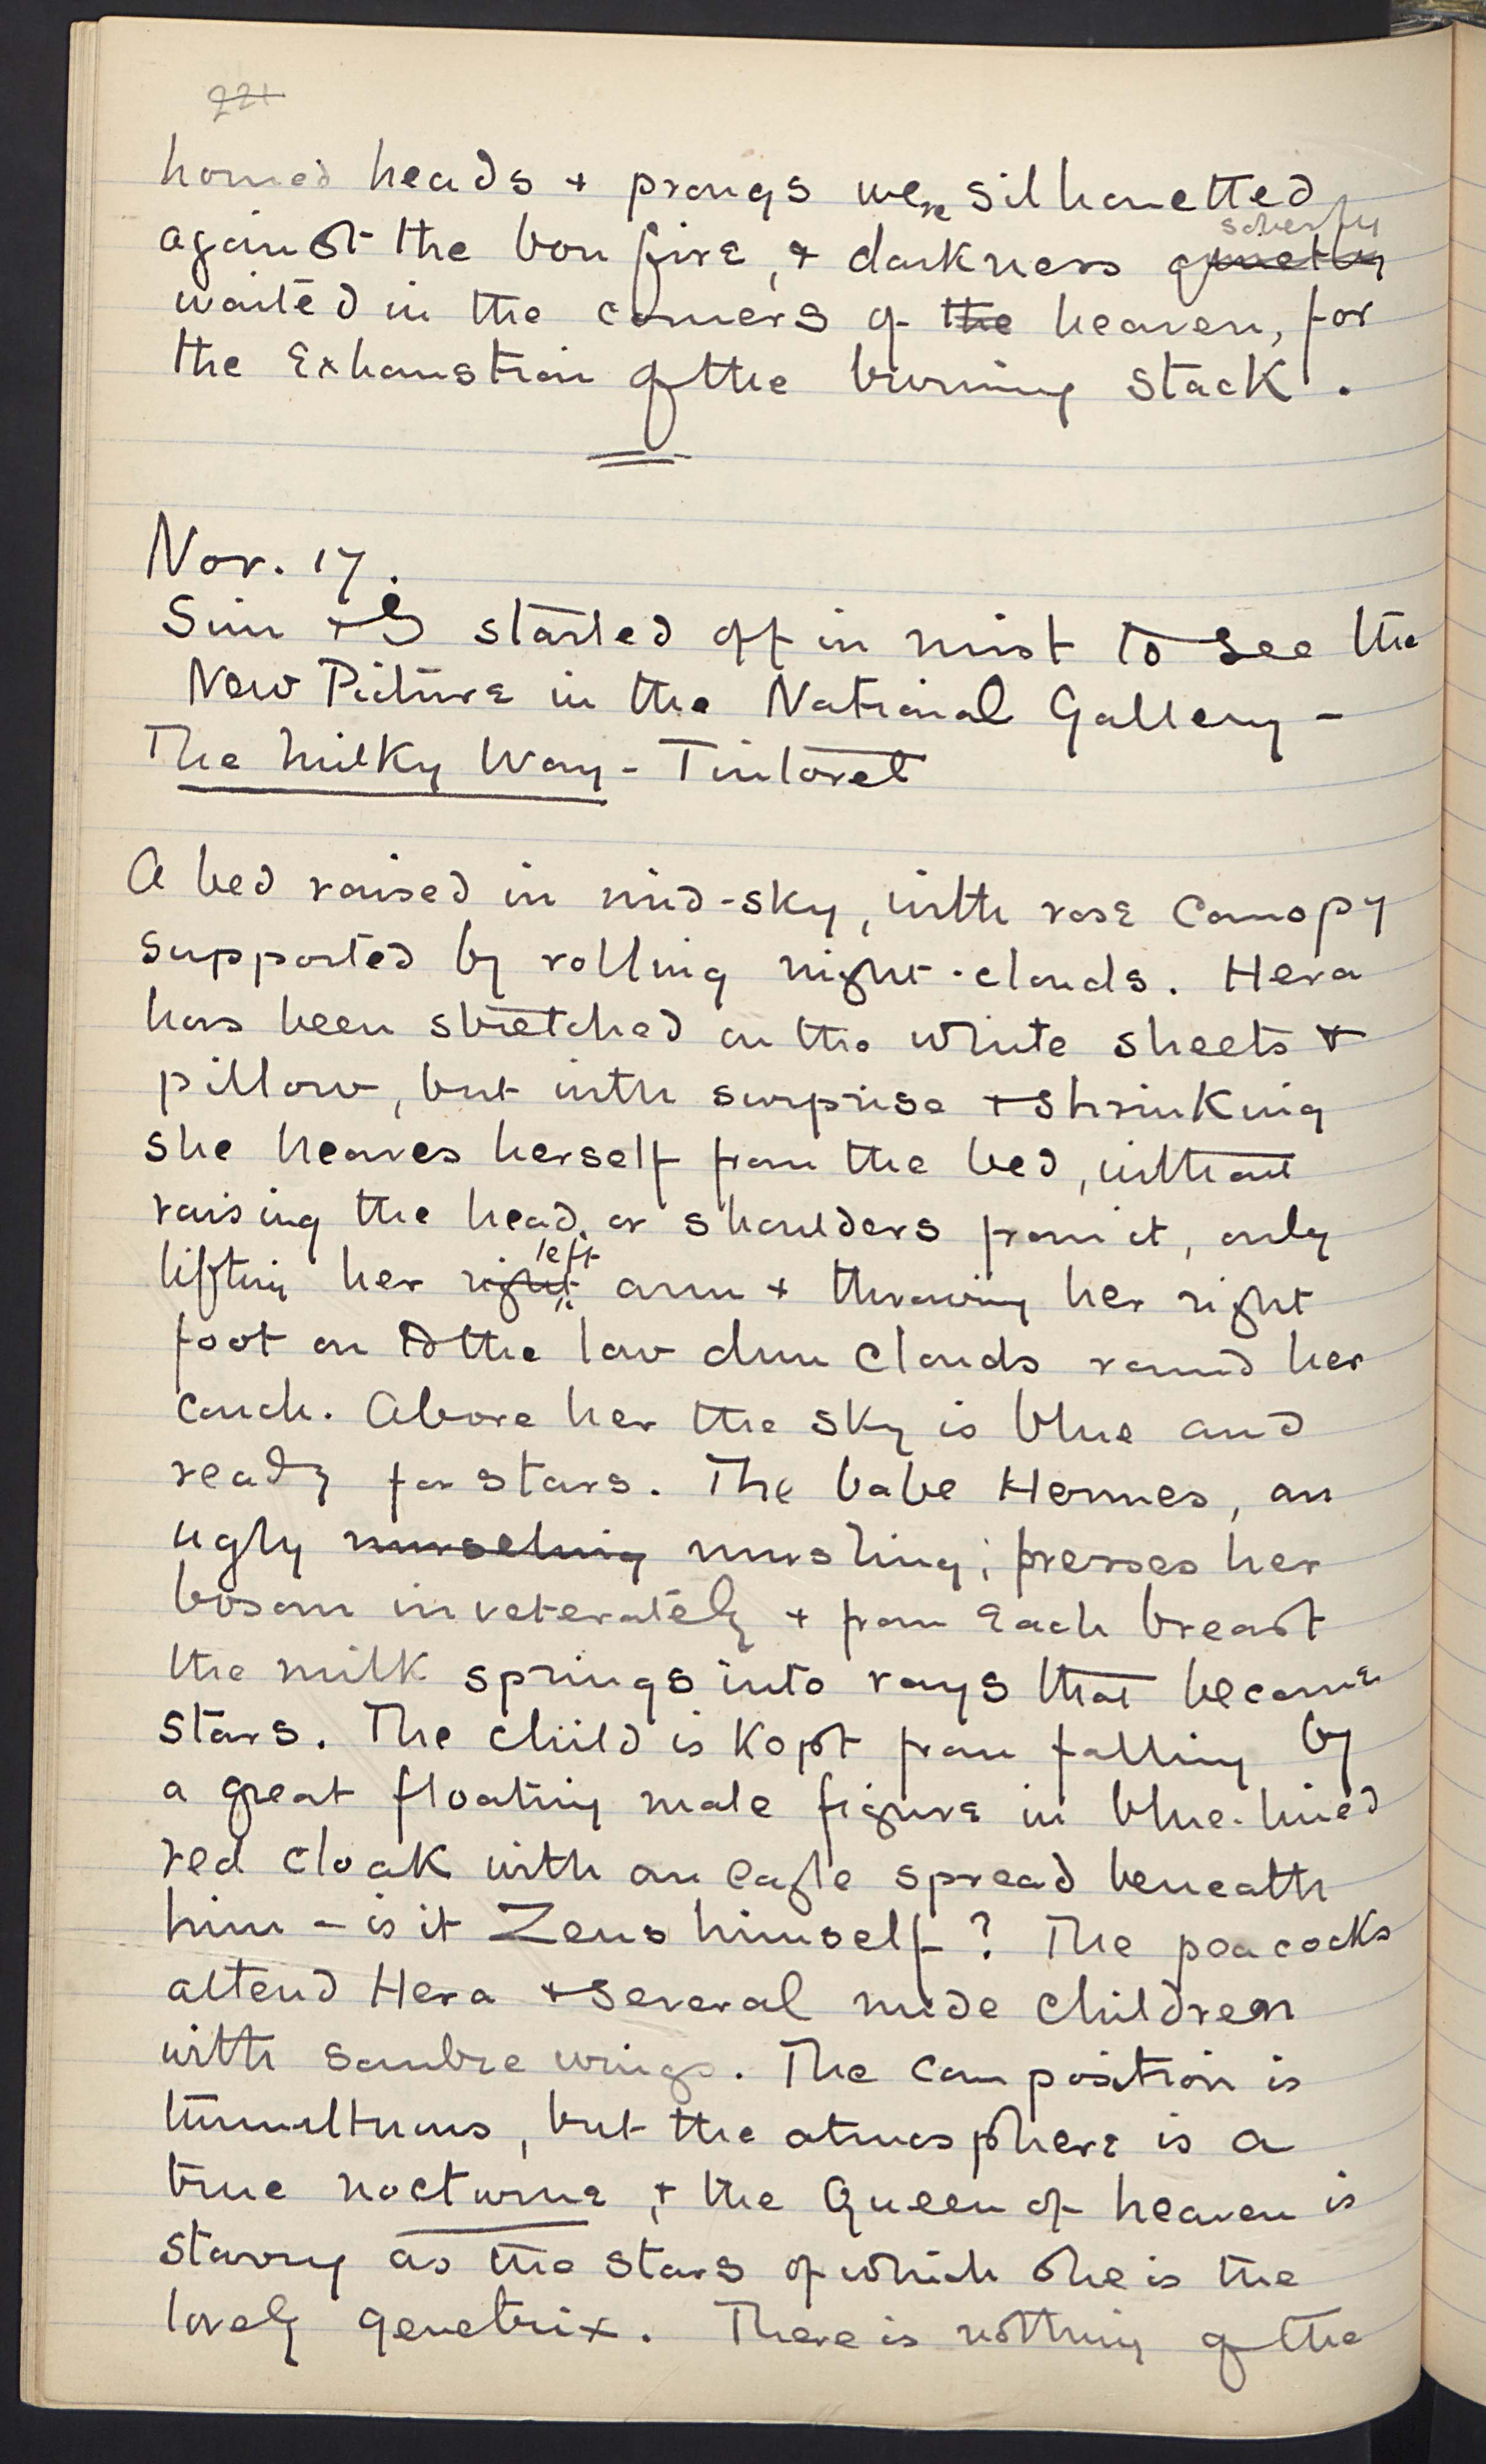 221
horned heads + prongs were silhouetted
against the bonfire, + darkness quietly soberly
waited in the corners of the heaven, for
the Exhaustion of the burning stack.
Nov. 17.
Sim + I started off in mist to see the
New Picture in the National Gallery -
The Milky Way - Tintoret
A bed raised in mid-sky, with rose canopy
supported by rolling night-clouds. Hera
has been stretched on the white sheets +
pillow, but with surprise + shrinking
she heaves herself from the bed, without
raising the head or shoulders from it, only
lifting her right left arm + throwing her right
foot on to the low dun clouds round her
couch. Above her the sky is blue and
ready for stars. The babe Hermes, an
ugly nurseling nursling, presses her
bosom inveterately + from each breast
the milk springs into rays that become
stars. The child is kept from falling by
a great floating male figure in blue-lined
red cloak with an eagle spread beneath
him - is it Zeus himself? The peacocks
attend Hera + several nude children
with sombre wings. The composition is
tumultuous, but the atmosphere is a
true nocturne, + the Queen of heaven is
starry as the stars of which she is the
lovely genetrix. There is nothing of the